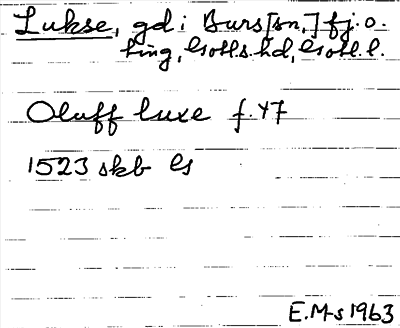 Lukse, gd i Burs[sn,] fj. o.
ting, Gotl.s. hd, Gotl. l.
Oluff luxe f. 47
1523 skb Gs
E.M-s 1963